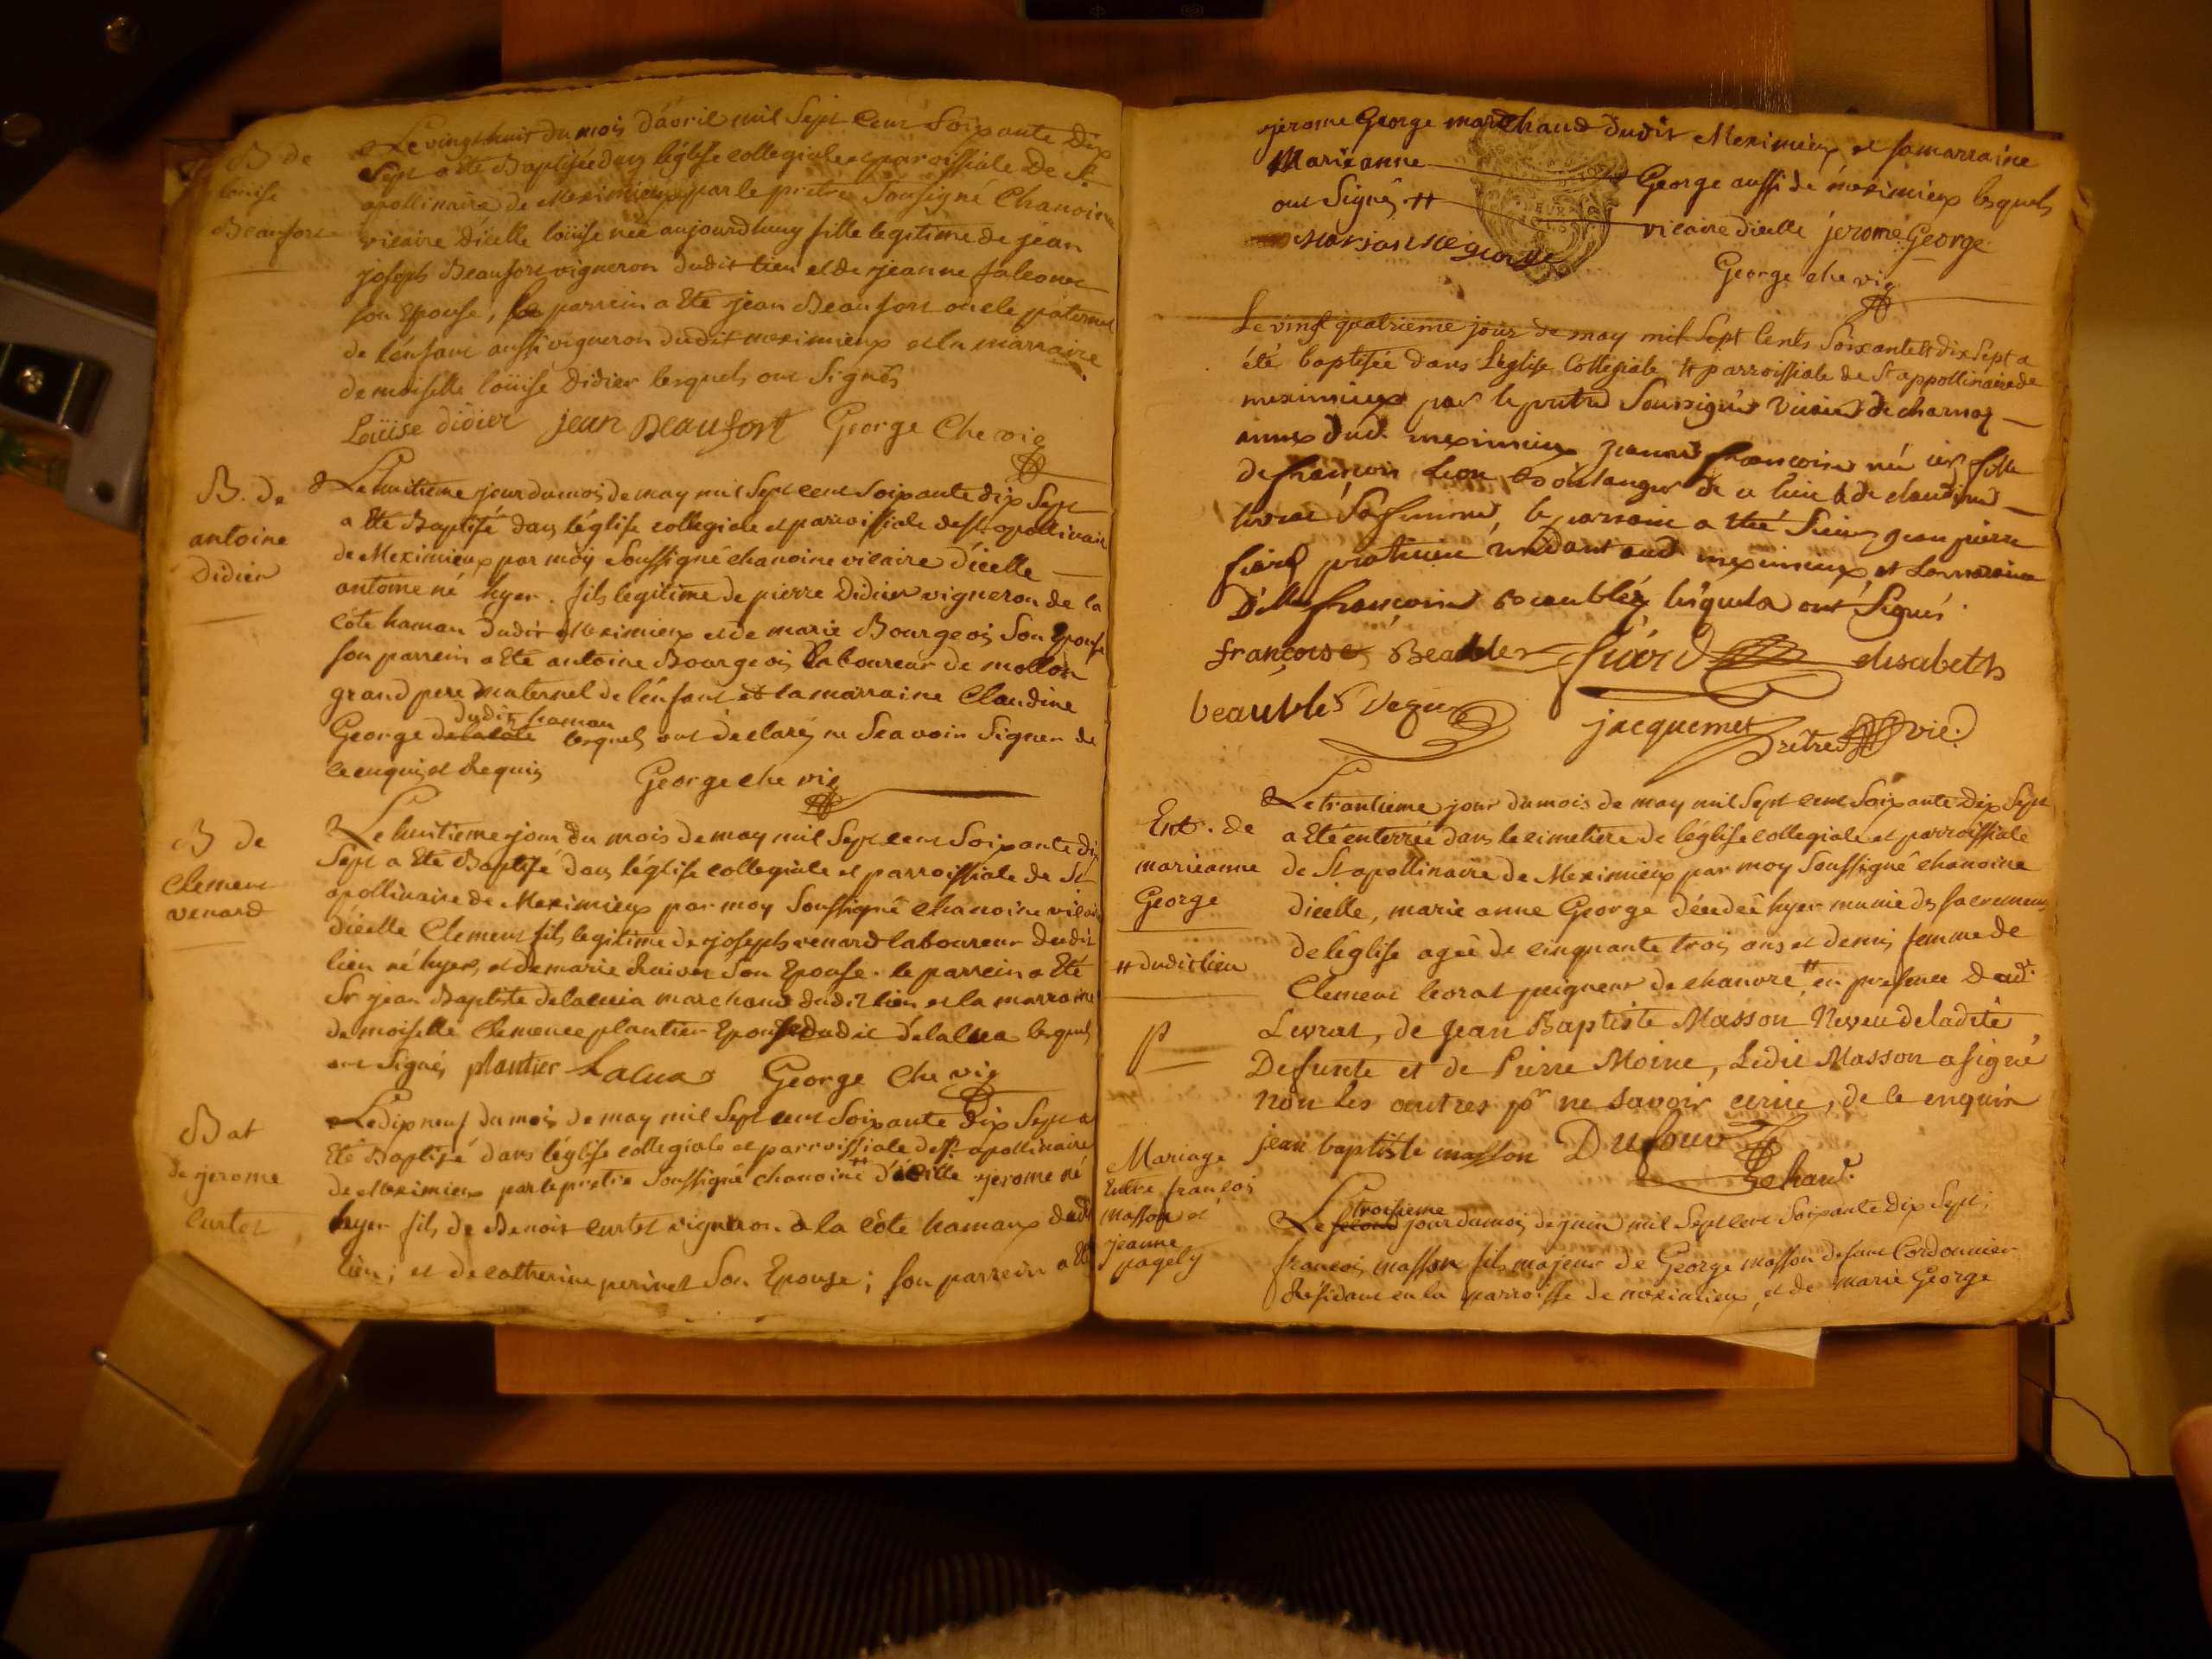 B de
louise
Beaufort
Le vingt huit du mois d'avril mil Sept Cent Soixante Dix
Sept a ete Baptisée dans l'église collegiale et paroissiale De St
apollinaire de Meximieux par le pretre Sousigné Chanoine
vicaire d'icelle loüise née aujourdhuy fille legitime de jean
joseph Beaufort vigneron dudit lieu et de jeanne falconet
son Epouse, le parrein a Eté jean Beaufort oncle paternel
de l'enfant aussi vigneron dudit meximieux et la marraine
demoiselle loüise Didier lesquels ont Signés
Loüise didier jean Beaufort George Che vic
B. de
antoine
Didier
Le huitieme jour du mois de may mil Sept cent Soixante dix Sept
a Eté Baptisé dans l'église collegiale et parroissiale de St apollinaire
de Meximieux par moy Soussigné chanoine vicaire d'icelle
antoine né hyer. fils legitime de pierre Didier vigneron de la
côte hamau dudit Meximieux et de marie Bourgeois Son Epouse
son parrein a Eté antoine Bourgeois laboureur de mollon
grand pere maternel de l'enfant et la marraine Claudine
dudit hamau
George de la côte lesquels ont declarés ne Scavoir Signer de
ce enquis et Requis George che vic
B de
Clement
venard
Le huitieme jour du mois de may mil Sept cent Soixante dix
Sept a Eté Baptisé dans l'église collegiale et parroissiale de St
apollinaire de Meximieux par moy Soussigné chanoine vicaire
d'icelle Clement fils legitime de joseph venard laboureur dudit
lieu né hyer, et de marie Ruivet Son Epouse. le parrein a Eté
Sr jean Baptiste delacua marchand dudit lieu et la marraine
demoiselle Clemence plantier Epouse dudit delacua lesquels
ont Signés plantier Lacua George Che vic
Bat
de jerome
curtet
Le dix neuf du mois de may mil Sept cent Soixante Dix Sept a
Eté Baptisé dans l'église collegiale et parroissiale de St apollinaire
de Meximieux par le pretre Soussigné chanoine # d'icelle jerome né
hyer fils de Benoit curtet vigneron à la côte hamaux dudt
lieu; et de catherine perinet Son Epouse; son parrein a Eté
jerome George marchand dudit Meximieux et sa marraine
Marieanne George aussi de meximieux lesquels
ont Signés # vicaire d'icelle jerome George
marianne george George che vic
Le vingt quatrieme jour de may mil Sept Cents Soixante & dix Sept a
été baptisée dans l'église Collegiale & parroissiale de St appollinaire de
meximieux par le pretre Soussigné Vicaire de charnoz
annex dud. meximieux jeanne francoise née ier fille
de françois Lion boulanger de ce lieu & de claudine
Sa femme, le parrain a etté Sieur jean pierre
praticien residant aud. meximieux et la marraine
Dlle francoise lesquels ont Signés.
françoise Beaublez elisabeth
beaublez
jacquemet Prêtre vic.
Ent. de
marieanne
George
# dudit lieu
Le trantieme jour du mois de may mil Sept cent Soixante Dix Sept
a Eté enterrée dans le cimetiere de l'église collegiale et parroissiale
de St apollinaire de Meximieux par moy Soussigné chanoine
d'icelle, marie anne George décedeé hyer munie des sacremens
de l'église ageé de cinquante trois ans et demis femme de
Clement levrat peigneur de chanvre #, en presence dudt
Levrat, de Jean Baptiste Masson Neveu de ladite
Defunte et de Pierre Moine, Ledit Masson a signé
non les autres pr ne savoir ecrire, de ce enquis
jean baptiste masson Dufour
chan.
Mariage
Entre francois
masson et
jeanne
pagely
troisieme
Le second jour du mois de juin mil Sept cent Soixante Dix Sept;
francois masson fils majeur de George masson defunt Cordonnier
Résidant en la parroisse de meximieux, et de marie George